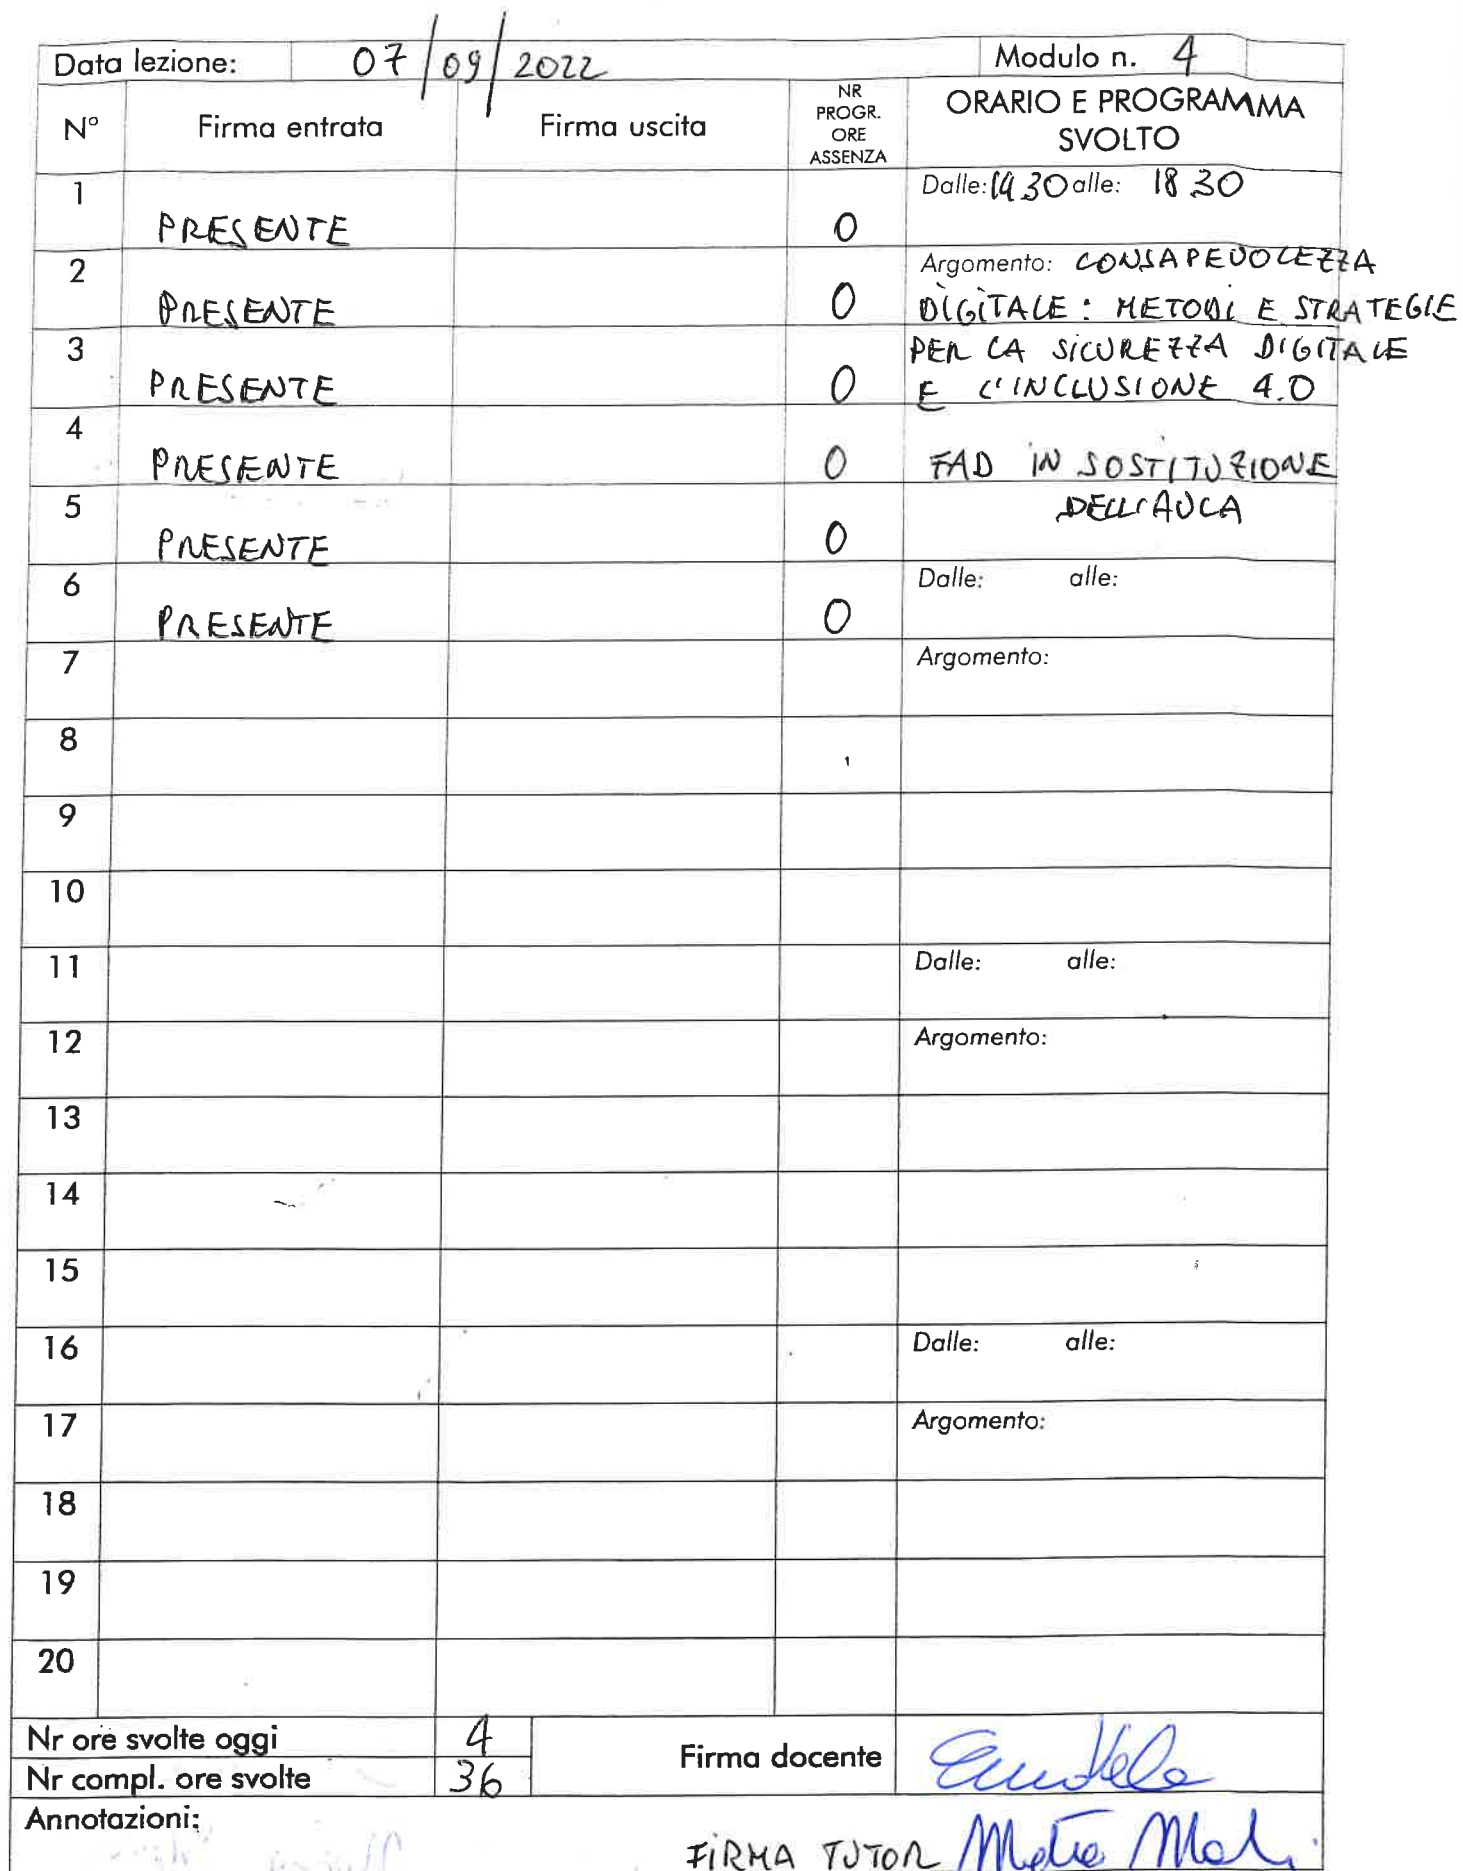 Data lezione: 07/09/2022 Modulo n. 4
N° Firma entrata Firma uscita NR PROGR. ORE ASSENZA ORARIO E PROGRAMMA SVOLTO
1 PRESENTE 0 Dalle: 14.30 alle: 18 30
2 PRESENTE 0 Argomento: CONSAPEVOLEZZA
DIGITALE: METODI E STRATEGIE
3 PRESENTE 0 PER LA SICUREZZA DIGITALE
E L'INCLUSIONE 4.0
4 PRESENTE 0 FAD IN SOSTITUZIONE
5 PRESENTE 0 DELL'AULA
6 PRESENTE 0 Dalle: alle:
7 Argomento:
8
9
10
11 Dalle: alle:
12 Argomento:
13
14
15
16 Dalle: alle:
17 Argomento:
18
19
20
Nr ore svolte oggi 4 Firma docente
Nr compl. ore svolte 36
Annotazioni:
FIRMA TUTOR